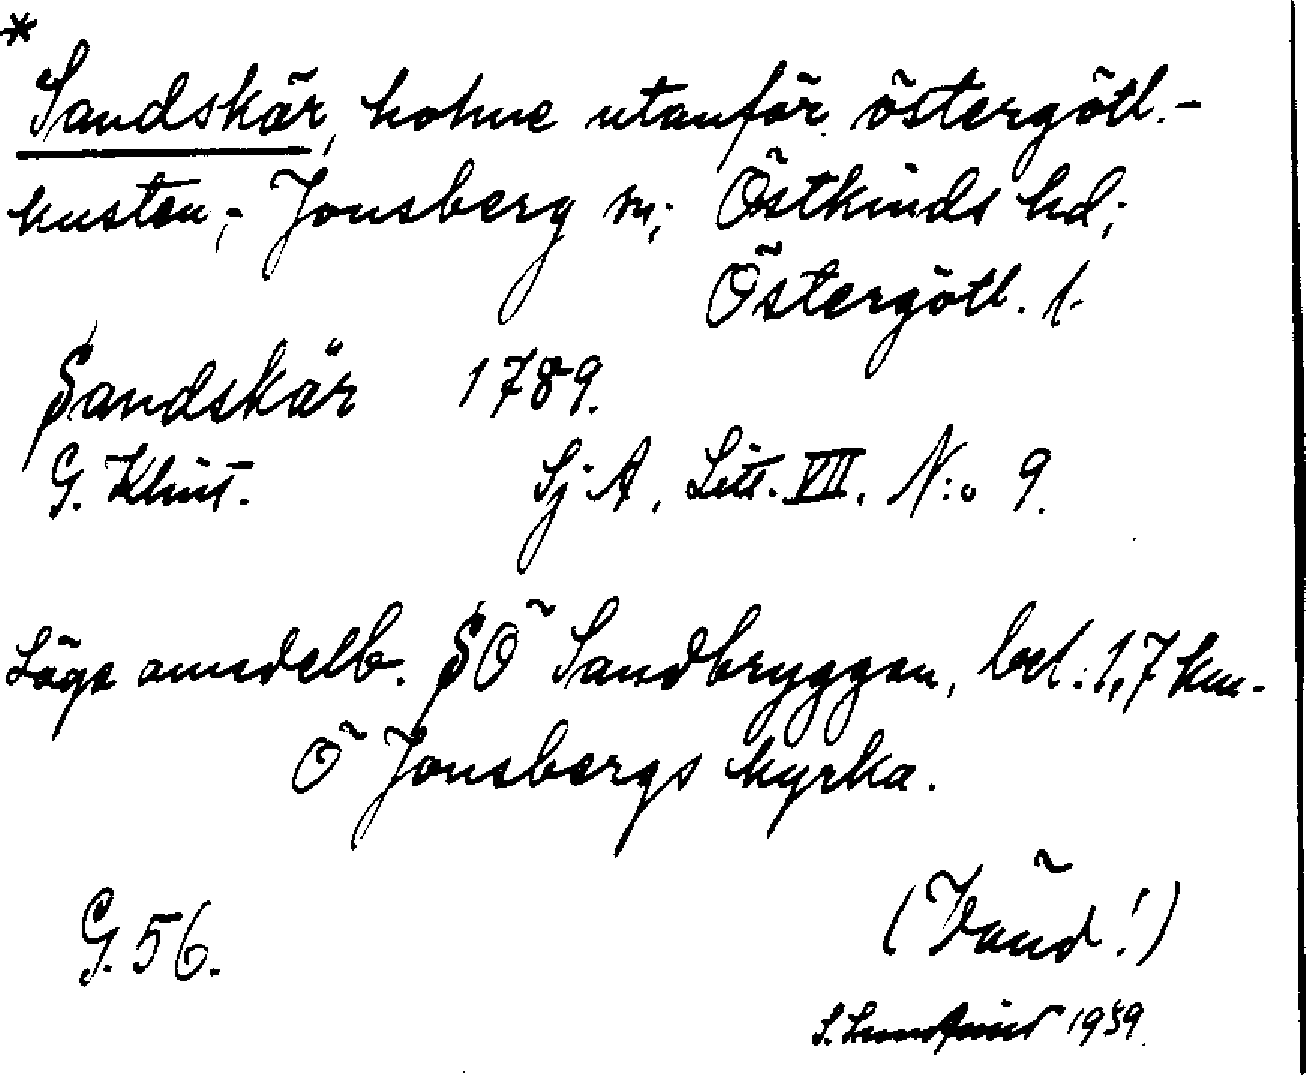 *
Sandskär, holme utanför östergötl.-
kusten; Jonsberg sn; Östkinds hd;
Östergötl. l.
Sandskär 1789.
G. Klint. Sj. A, Litt. VII. N:o 9.
Läge omedelb. SÖ Sandbryggan, bel. 1,7 km.
Ö Jonsbergs kyrka.
G. 56. (Vänd!)
S. 1939.